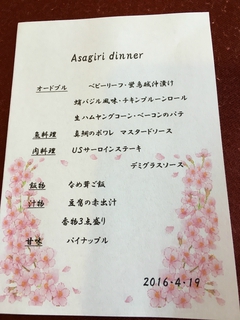 Asagiri dinner
オードブル ベビーリーフ・蛍烏賊沖漬け
蛸バジル風味・チキンプルーンロール
生ハムヤングコーン・ベーコンのパテ
魚料理 真鯛のポワレ マスタードソース
肉料理 USサーロインステーキ
デミグラスソース
飯物 なめ茸ご飯
汁物 豆腐の赤出汁
香物3点盛り
甘味 パイナップル
2016・4・19